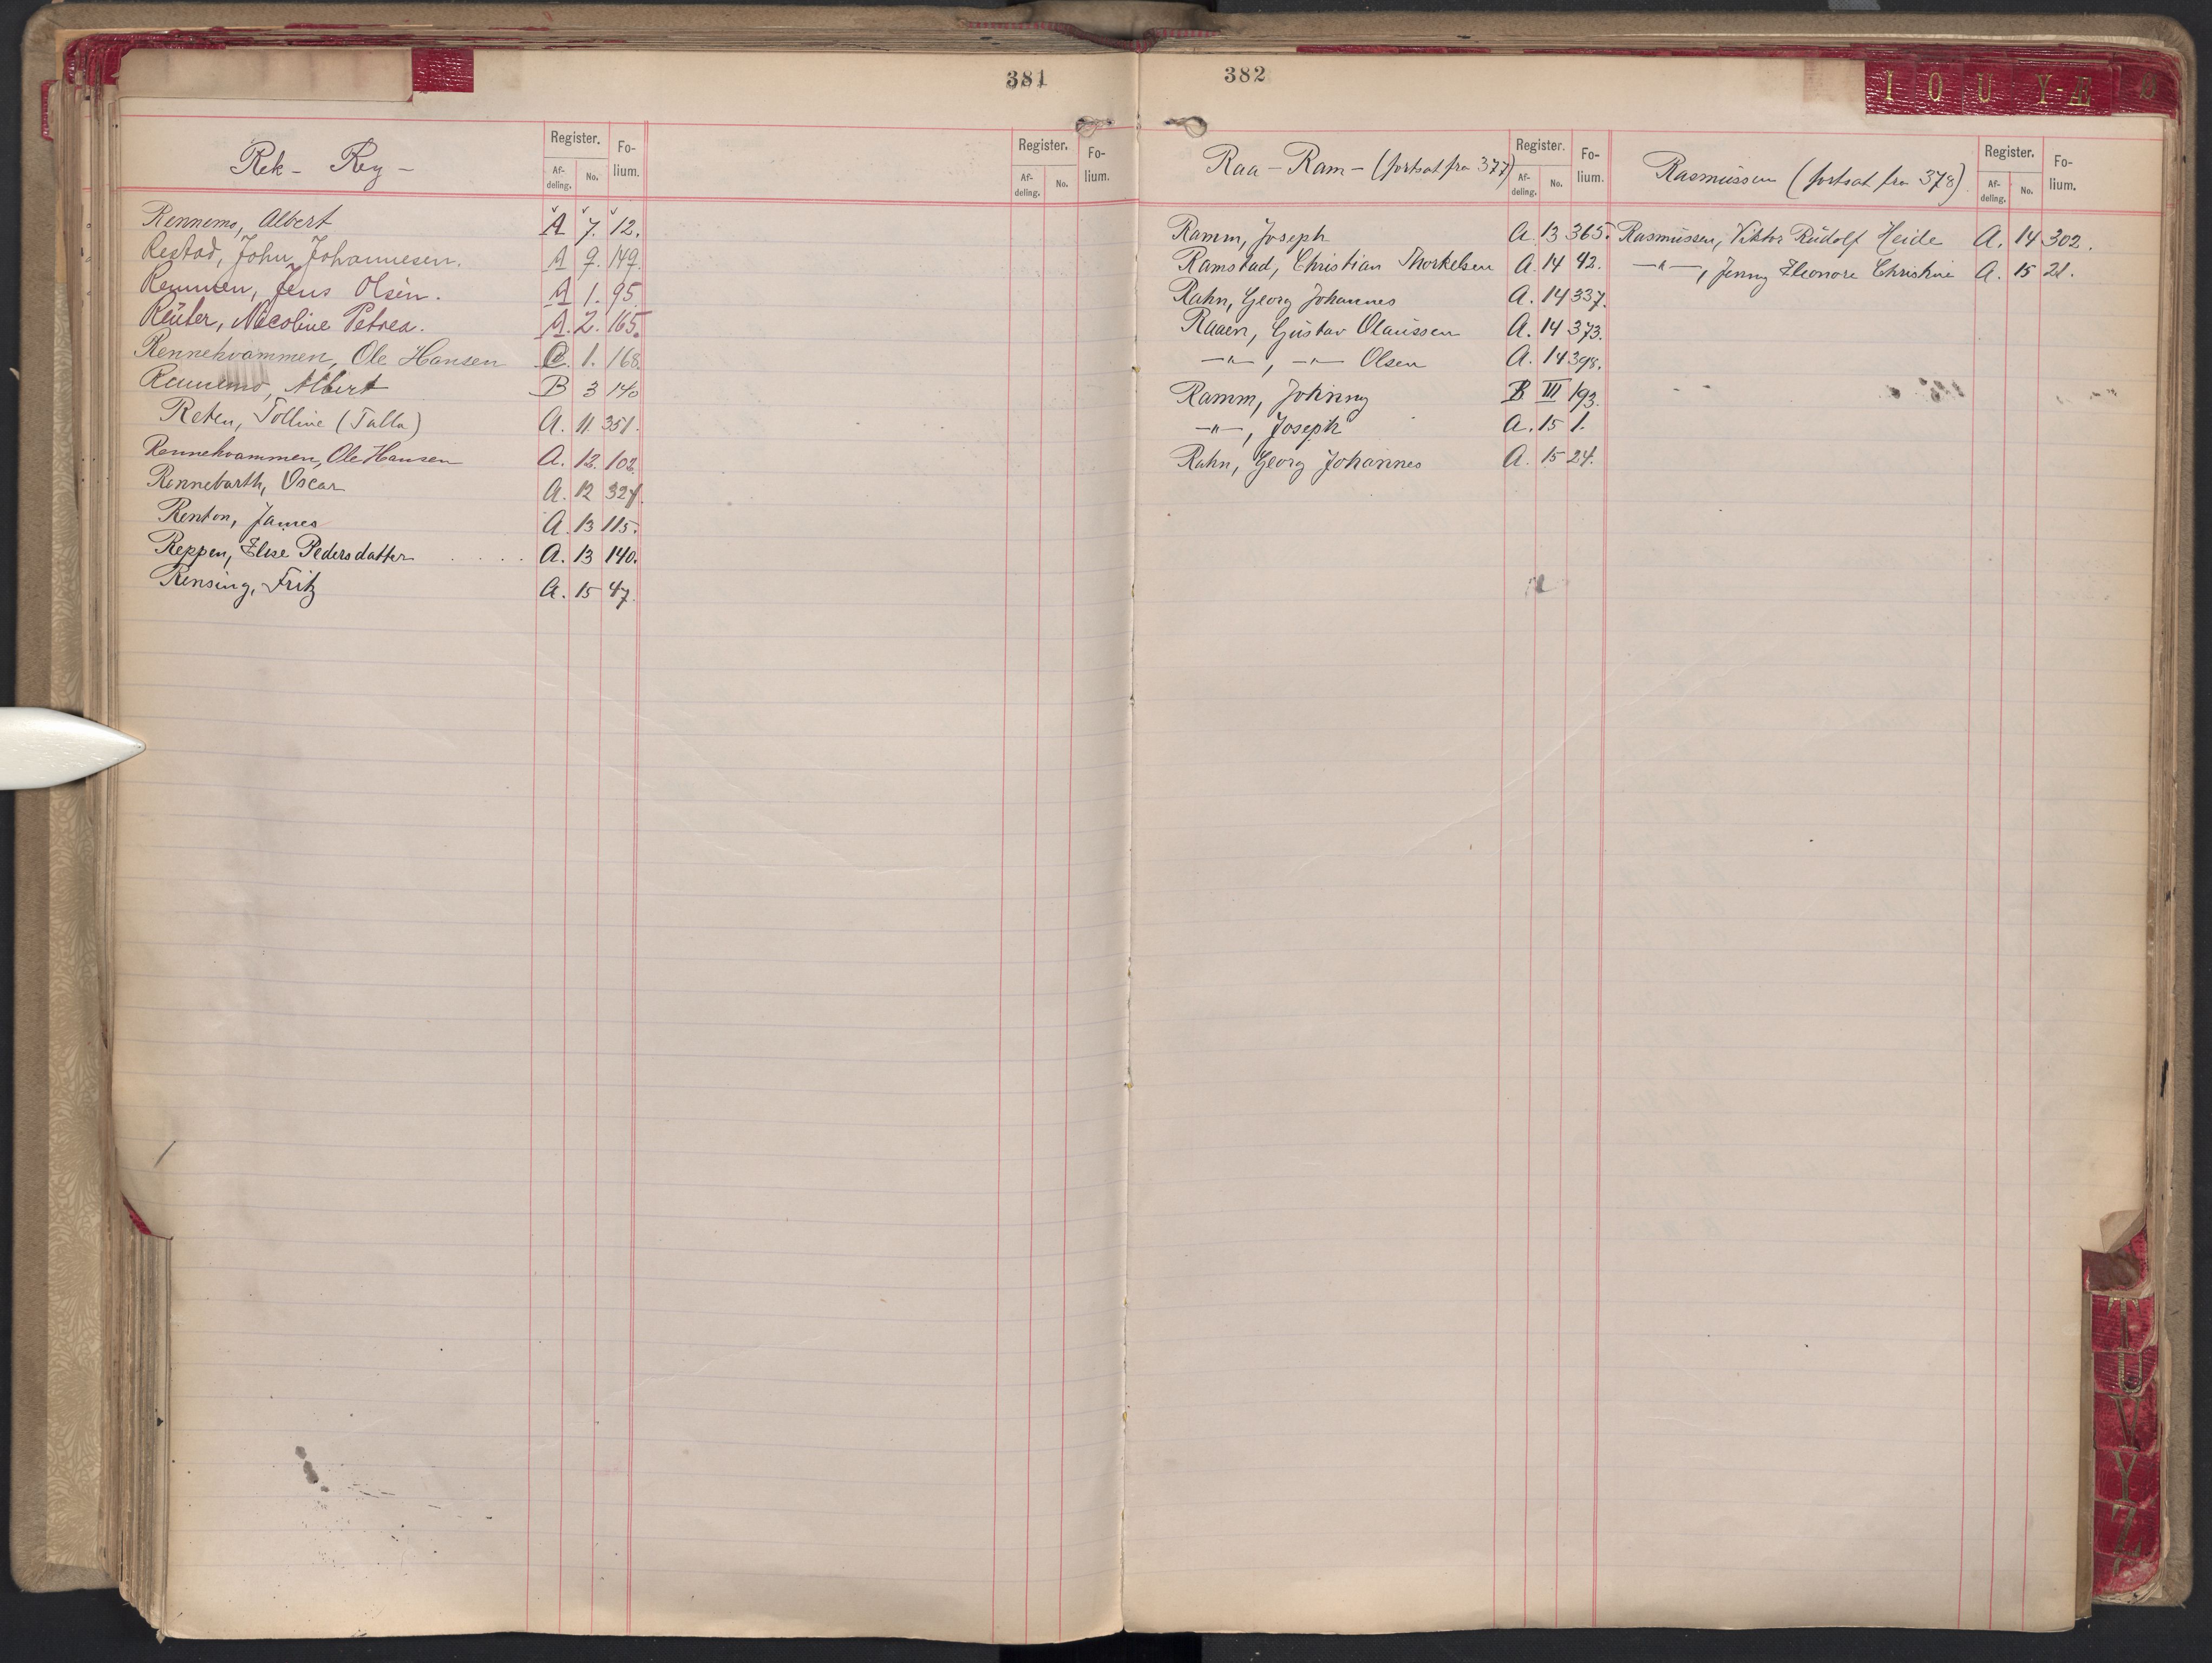 381
Rek - Rey -
Register.
Fo-
lium.
Af-
deling.
No.
Register.
Fo-
lium.
Af-
deling.
No.
Rennemo, Albert A 7. 12.
Restad, John Johannesen. A 9. 149.
Remmen, Jens Olsen. A 1. 95.
Reüter, Nicoline Petrea. A. 2. 165.
Rennehvammen, Ole Hansen C. 1. 168.
Rennemo, Albert B 3 140
Reten, Tolline (Talla) A. 11. 351.
Rennehvammen, Ole Hansen A. 12. 102.
Rennebarth, Oscar A. 12 327.
Renton, James A. 13 115.
Reppen, Elise Pedersdatter . . . . A. 13 140.
Rensing, Fritz A. 15 47.
382
Raa - Ram - (fortsat fra 377)
Register.
Fo-
lium.
Af-
deling.
No.
Ramm, Joseph A. 13 365.
Ramstad, Christian Thorkelsen A. 14 42.
Rahn, Georg Johannes A. 14 337.
Raaen, Gustav Olaüssen A. 14 373.
—"—, —"— Olsen A. 14 398.
Ramm, Johnny B III 193.
—"—, Joseph A. 15 1.
Rahn, Georg Johannes A. 15 24.
Rasmüssen (fortsat fra 378)
Register.
Fo-
lium.
Af-
deling.
No.
Rasmüssen, Viktor Rüdolf Heide A. 14 302.
—"—, Jenny Eleonore Christine A. 15 21.
I O U Y-Æ Ø
T
U
V
Y
Z